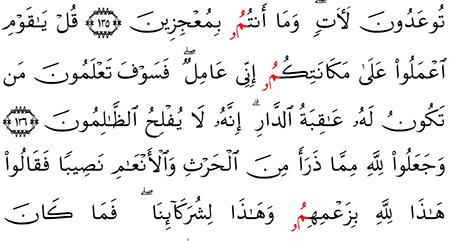 تُوعَدُونَ لَأٓتٖۖ وَمَآ أَنتُمُۥ بِمُعْجِزِينَ ١٣٥ قُلْ يَٰقَوْمِ
اِ۪عْمَلُواْ عَلَىٰ مَكَانَتِكُمُۥٓ إِنِّى عَامِلٞۖ فَسَوْفَ تَعْلَمُونَ مَن
تَكُونُ لَهُۥ عَٰقِبَةُ اُ۬لدَّارِۗ إِنَّهُۥ لَا يُفْلِحُ اُ۬لظَّٰلِمُونَ ١٣٦
وَجَعَلُواْ لِلهِ مِمَّا ذَرَأَ مِنَ اَ۬لْحَرْثِ وَالْأَنْعَٰمِ نَصِيبٗا فَقَالُواْ
هَٰذَا لِلهِ بِزَعْمِهِمُۥ وَهَٰذَا لِشُرَكَآئِنَاۖ فَمَا كَانَ